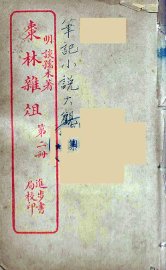 筆記小說大觀
明談孺木著
棗林雜俎
第二冊
進步書
局校印